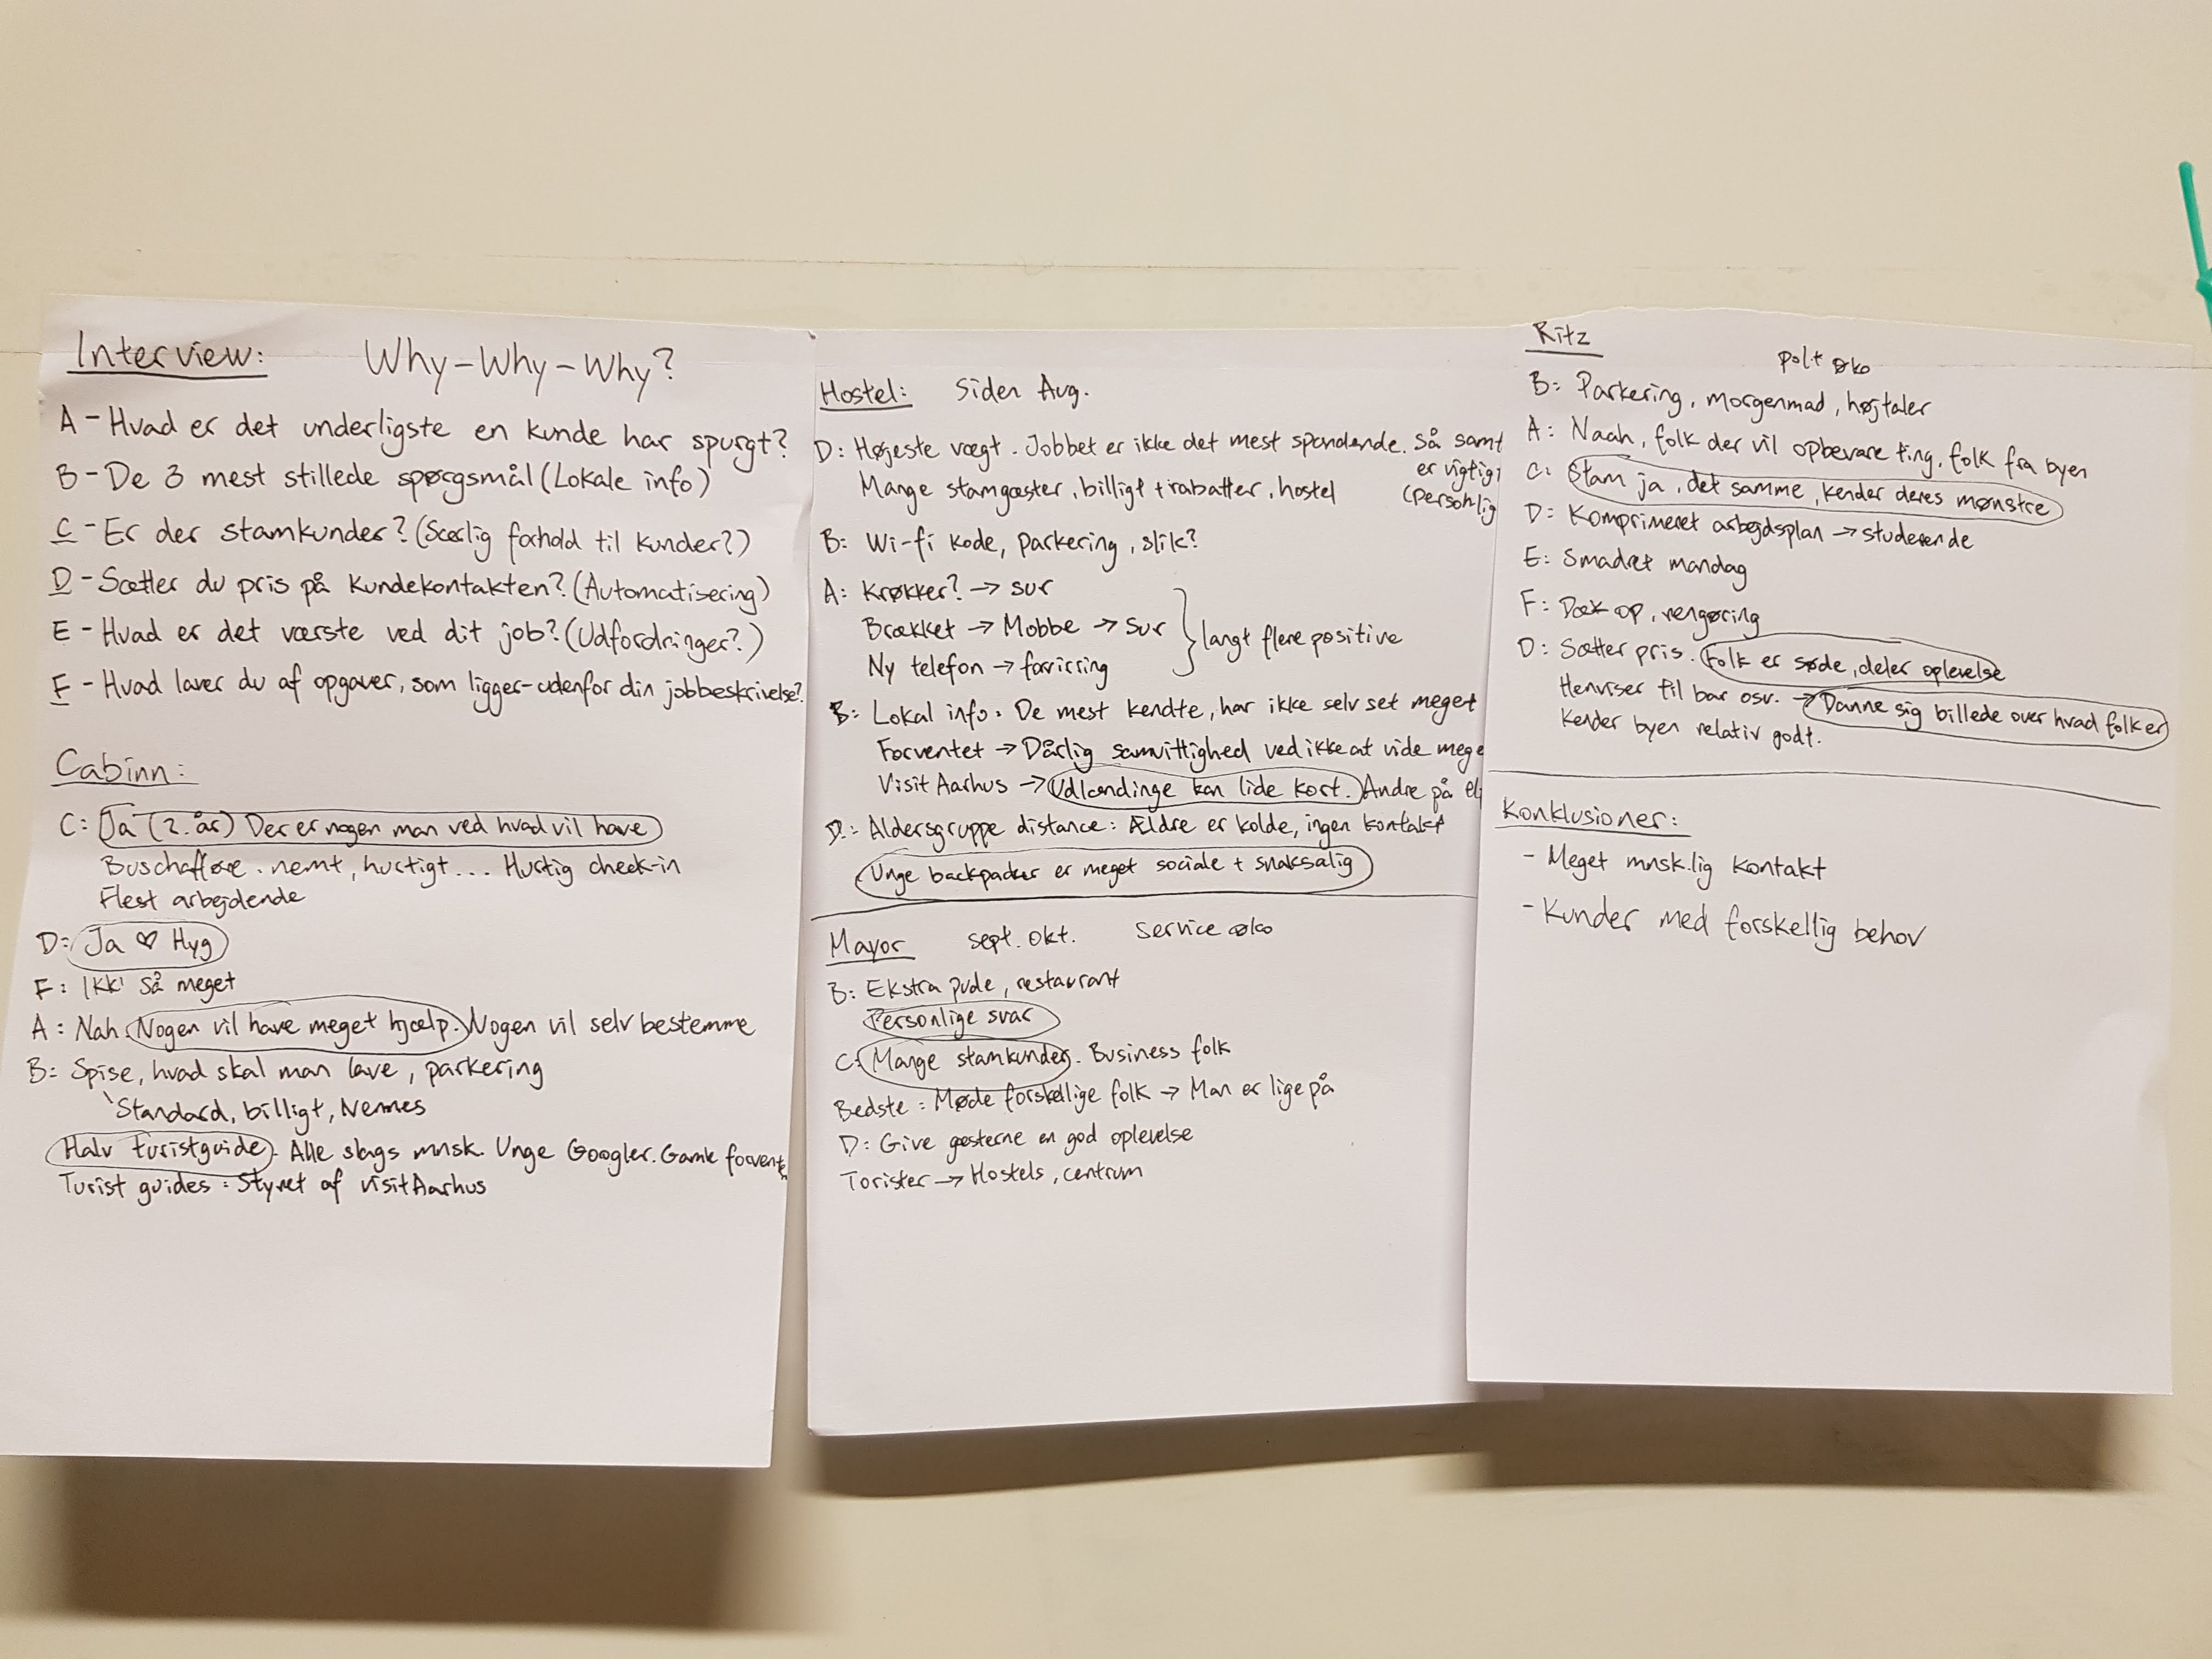 Interview: Why-Why-Why?
A - Hvad er det underligste en kunde har spurgt?
B - De 3 mest stillede spørgsmål (Lokale info)
C - Er der stamkunder? (Særlig forhold til kunder?)
D - Sætter du pris på kundekontakten? (Automatisering)
E - Hvad er det værste ved dit job? (Udfordringer?)
F - Hvad laver du af opgaver, som ligger udenfor din jobbeskrivelse?
Cabinn:
C: Ja (2. år) Der er nogen man ved hvad vil have
Buschaffører. nemt, hurtigt... Hurtig check-in
Flest arbejdende
D: Ja ♡ Hyg
F: Ikk' så meget
A: Nah. Nogen vil have meget hjælp. Nogen vil selv bestemme
B: Spise, hvad skal man lave, parkering
Standard, billigt, Nemmes
Halv turistguide. Alle slags mnsk. Unge Googler. Gamle forvent
Turist guides: Styret af visitAarhus
Hostel: Siden Aug.
D: Højeste vægt. Jobbet er ikke det mest spændende. Så samt
er vigtigt
Mange stamgæster, billigt + rabatter, hostel
(personlig
B: Wi-fi kode, parkering, slik?
A: Krøkker? → sur
Brækket → Mobbe → Sur
langt flere positive
Ny telefon → forvirring
B: Lokal info. De mest kendte, har ikke selv set meget
Forventet → Dårlig samvittighed ved ikke at vide mege
Visit Aarhus → Udlændinge kan lide kort. Andre på
D: Aldersgruppe distance: Ældre er kolde, ingen kontakt
Unge backpacker er meget sociale + snaksalig
Mayor sept. okt. service øko
B: Ekstra pude, restaurant
Personlige svar
C: Mange stamkunder. Business folk
Bedste: Møde forskellige folk → Man er lige på
D: Give gæsterne en god oplevelse
Torister → Hostels, centrum
Ritz
polt øko
B: Parkering, morgenmad, højtaler
A: Naah, folk der vil opbevare ting, folk fra byen
C: Stam ja, det samme, kender deres mønstre
D: Komprimeret arbejdsplan → studerende
E: Smadret mandag
F: Dæk op, rengøring
D: Sætter pris. Folk er søde, deler oplevelse
Henviser til bar osv. → Danne sig billede over hvad folk er
Kender byen relativ godt.
Konklusioner:
- Meget mnsk.lig kontakt
- Kunder med forskellig behov